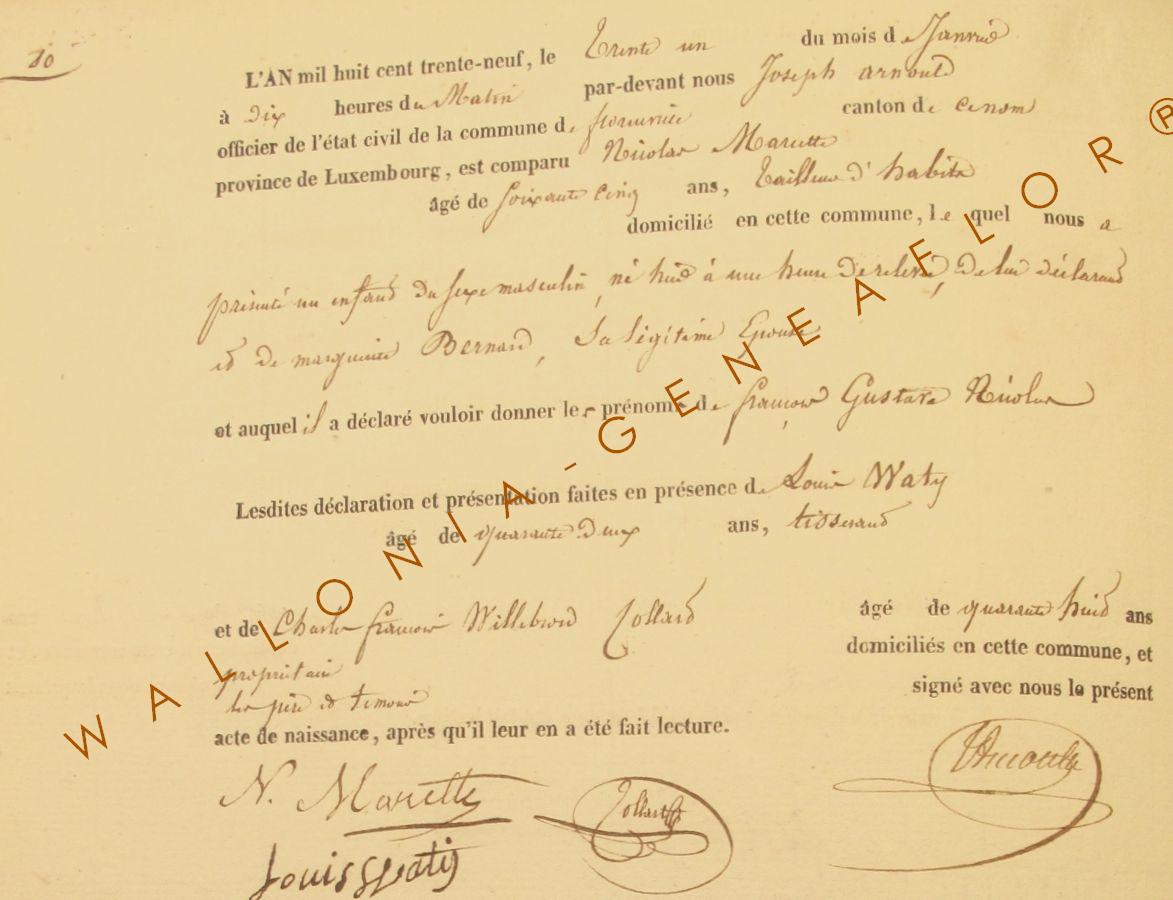 10
L'AN mil huit cent trente-neuf, le Trente un du mois de Janvier
à dix heures du Matin par-devant nous Joseph arnould
officier de l'état civil de la commune de florenville canton de
province de Luxembourg, est comparu Nicolas Marette
âgé de soixante cinq ans, tailleur d'habits
domicilié en cette commune, le quel nous a
présenté un enfant du sexe masculin, né hier à une heure de relevé, de lui déclarant
et de marguerite Bernard, sa légitime Epouse
et auquel il a déclaré vouloir donner les prénoms de françois Gustave Nicolas
Lesdites déclaration et présentation faites en présence de Louis Waty
âgé de quarante deux ans, tisserand
et de Charles françois Willebrord Collard âgé de quarante huit ans
propriétaire domiciliés en cette commune, et
les père et témoins signé avec nous le présent
acte de naissance, après qu'il leur en a été fait lecture.
N. Marette Collard Arnould
Louis Waty
WALLONIA-GENEAFLOR®